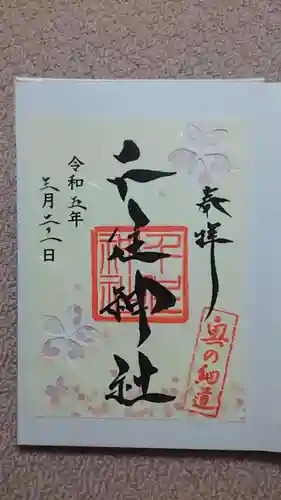 奉拝
奥の細道
千住神社
千住
神社
令和五年
三月 日